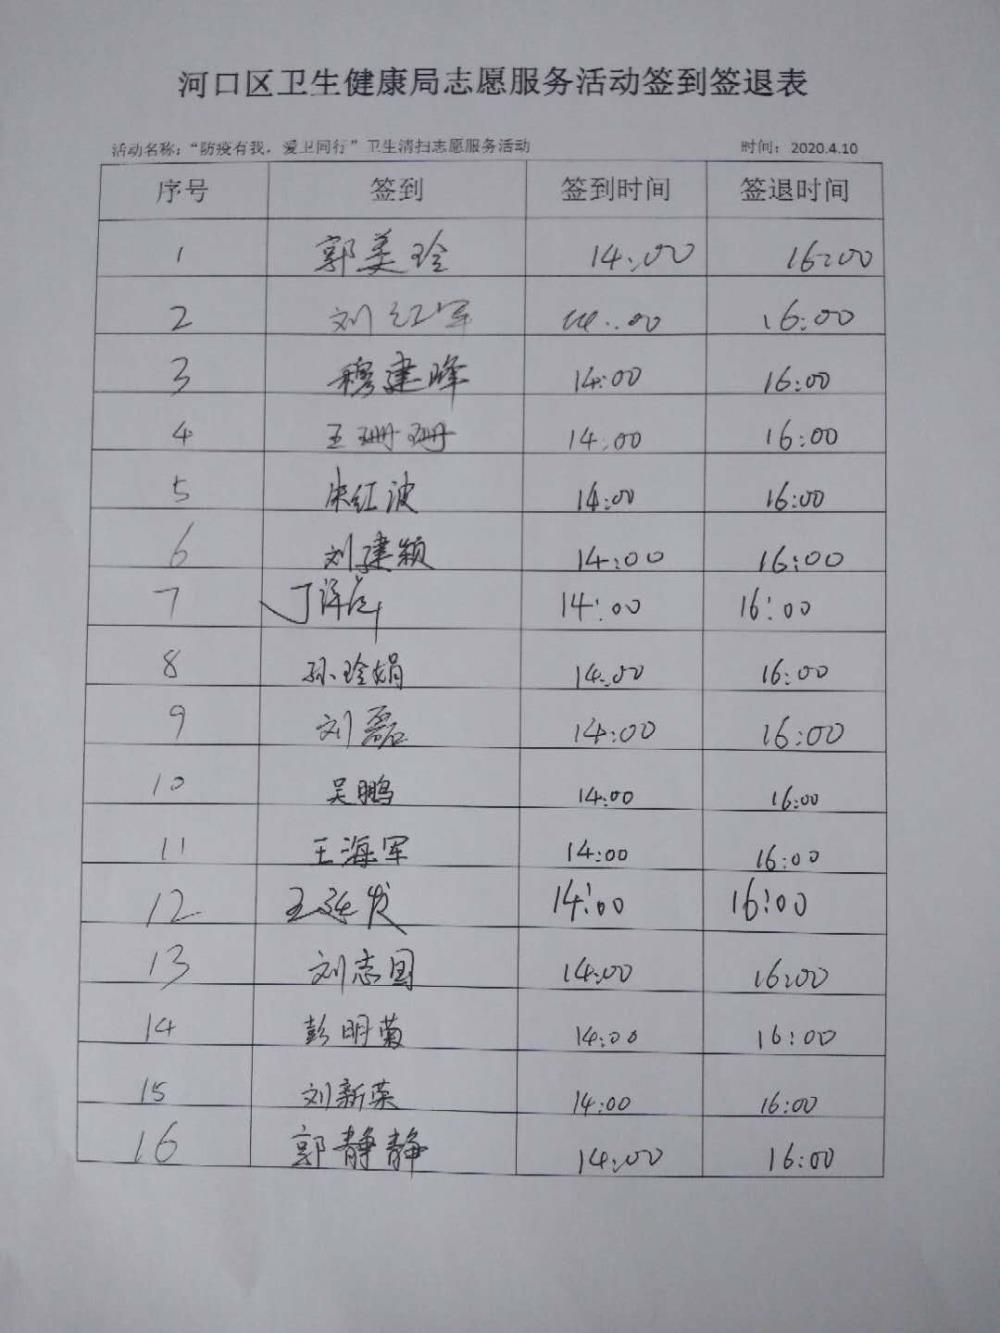 河口区卫生健康局志愿服务活动签到签退表
活动名称：“防疫有我，爱卫同行”卫生清扫志愿服务活动 时间：2020.4.10
序号 签到 签到时间 签退时间
1 郭美玲 14:00 16:00
2 刘红军 14:00 16:00
3 穆建峰 14:00 16:00
4 王珊珊 14:00 16:00
5 宋红波 14:00 16:00
6 刘建颖 14:00 16:00
7 14:00 16:00
8 孙玲娟 14:00 16:00
9 刘磊 14:00 16:00
10 吴鹏 14:00 16:00
11 王海军 14:00 16:00
12 14:00 16:00
13 刘志国 14:00 16:00
14 彭明菊 14:00 16:00
15 刘新荣 14:00 16:00
16 郭静静 14:00 16:00